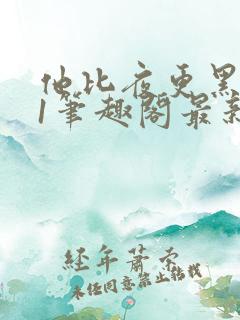 他比夜更黑
1笔趣阁最新
经年蕭索
未经同意禁止转载